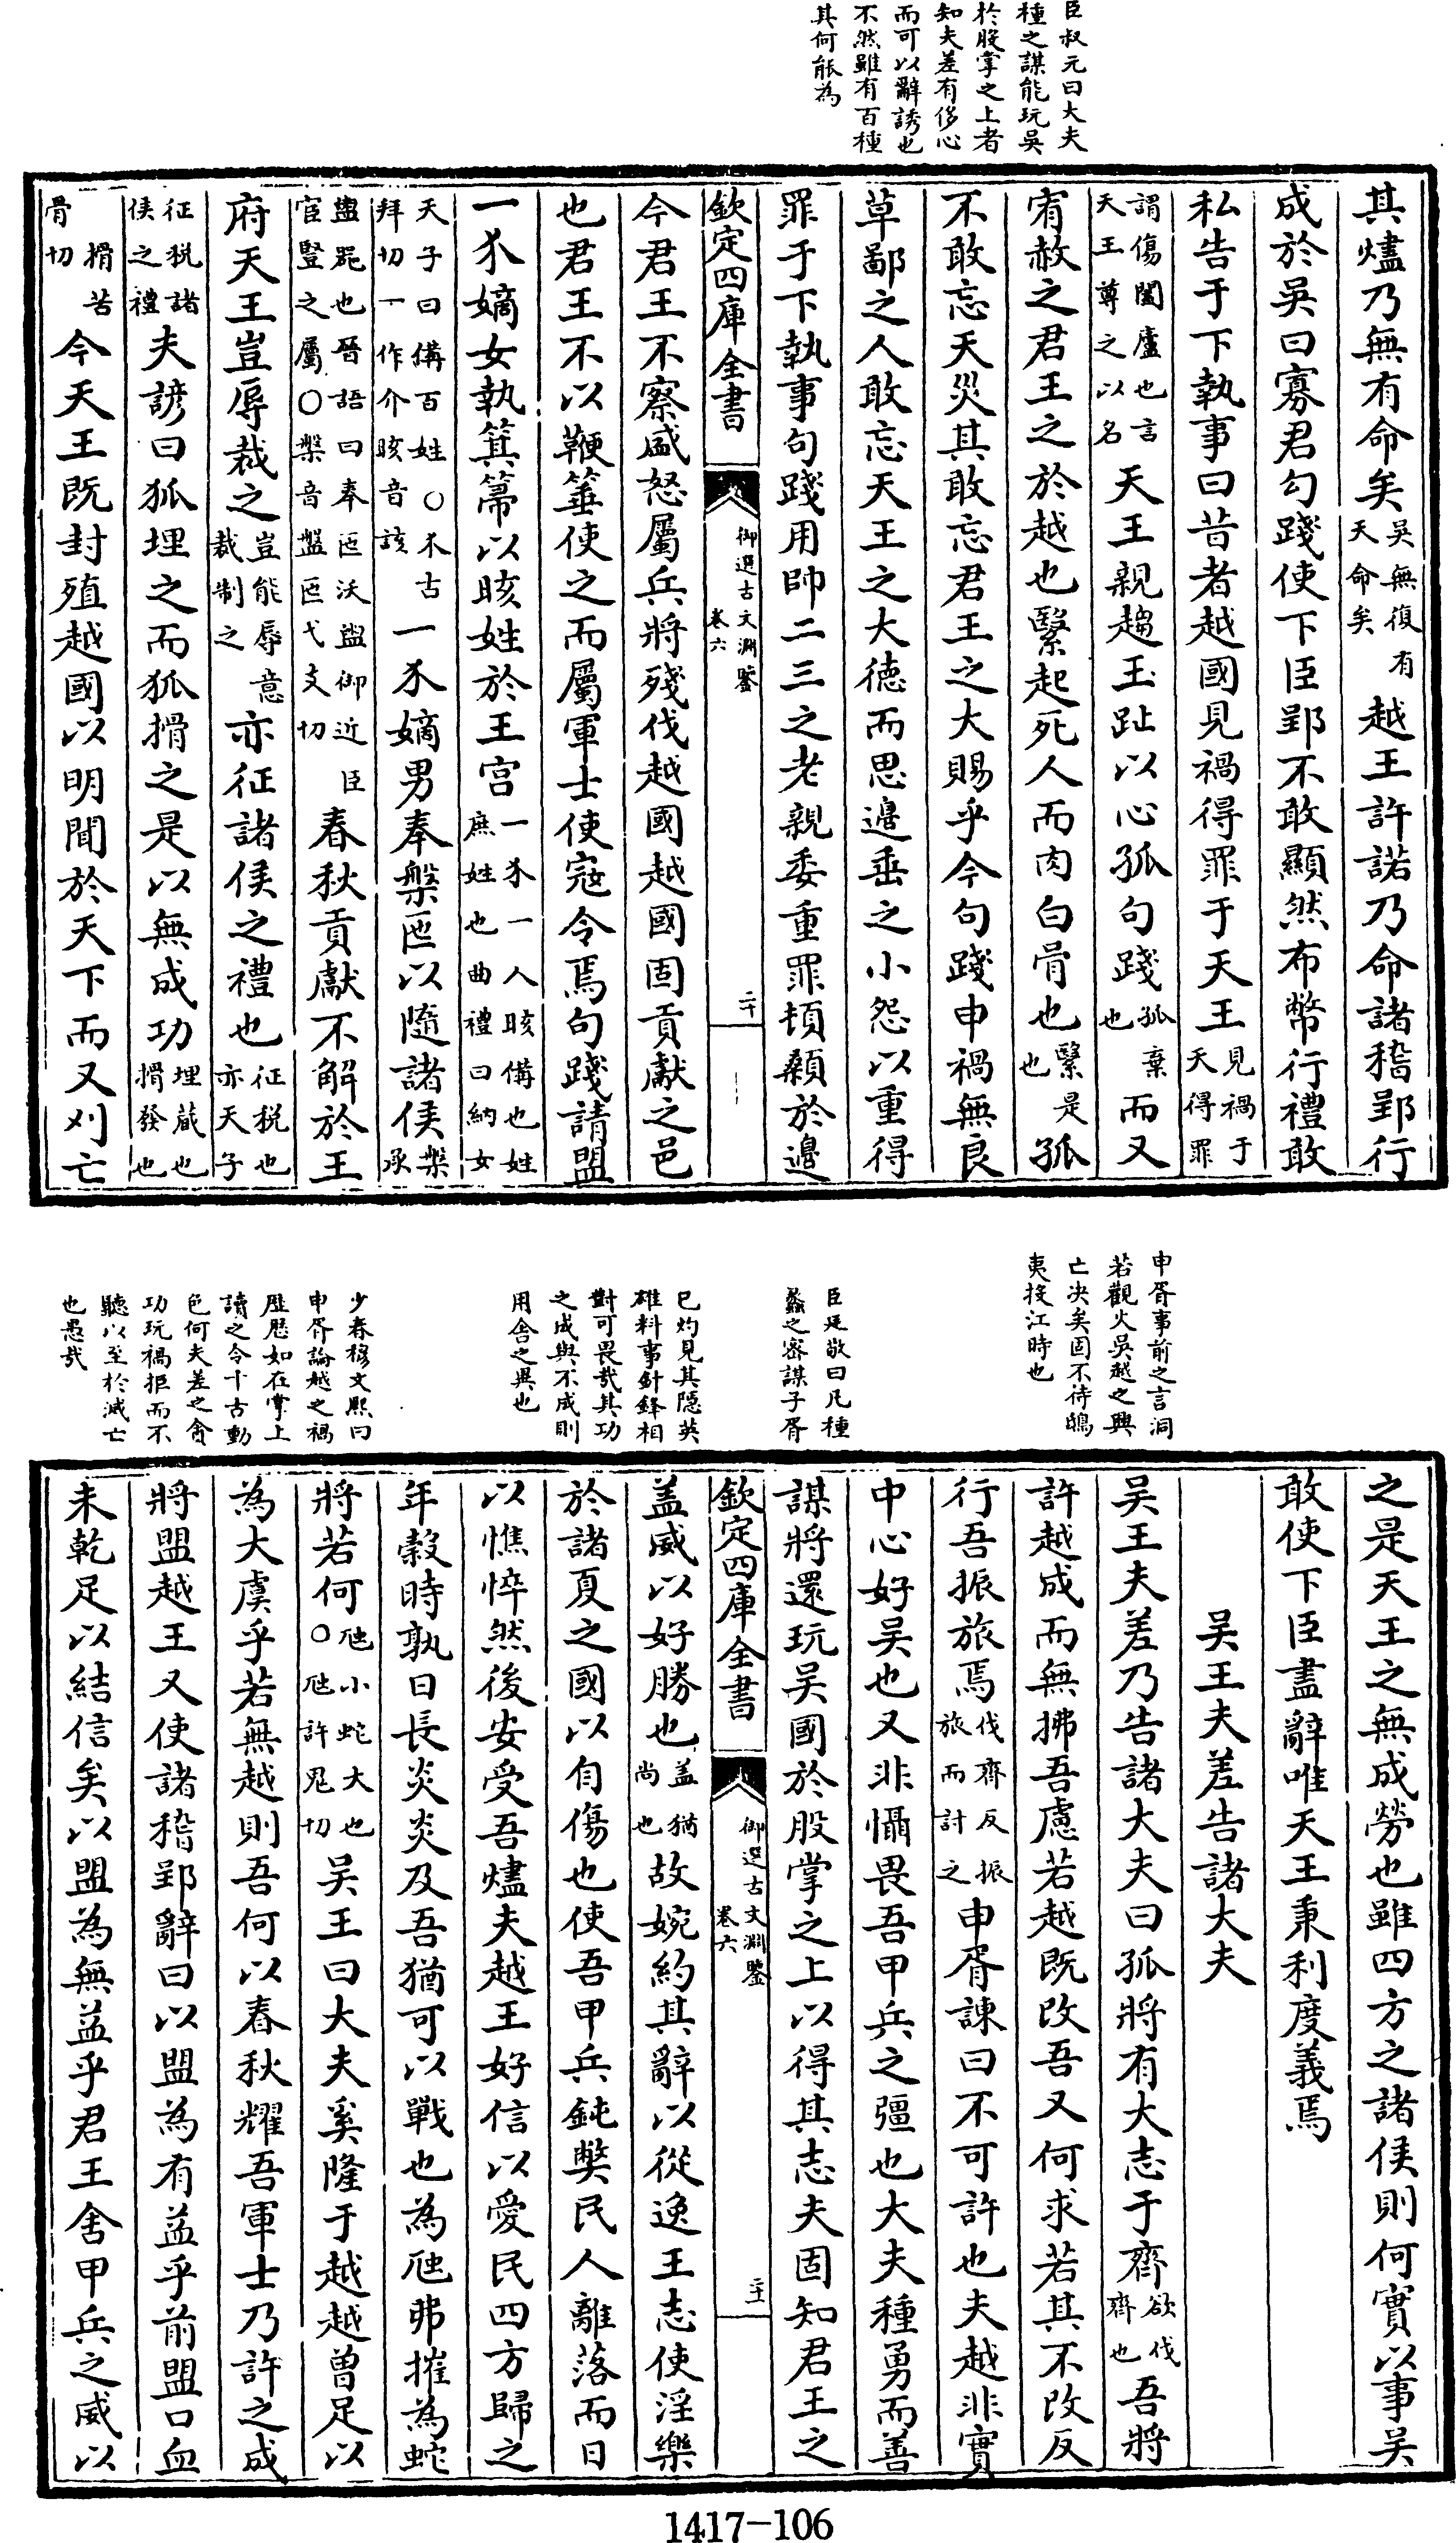 臣叔元曰大夫
種之謀能玩吳
於股掌之上者
知夫差有侈心
而可以辭誘也
不然雖有百種
其何能為
其燼乃無有命矣吳無復有天命矣越王許諾乃命諸稽郢行
成於吳曰寡君勾踐使下臣郢不敢顯然布幣行禮敢
私告于下執事曰昔者越國見禍得罪于天王見禍于天得罪
謂傷闔廬也言天王尊之以名天王親趨玉趾以心孤句踐孤棄也而又
宥赦之君王之於越也繄起死人而肉白骨也繄是也孤
不敢忘天災其敢忘君王之大賜乎今句踐申禍無良
草鄙之人敢忘天王之大德而思邊垂之小怨以重得
罪于下執事句踐用帥二三之老親委重罪頓顙於邊
欽定四庫全書 御選古文淵鑒卷六 二十
今君王不察盛怒屬兵將殘伐越國越國固貢獻之邑
也君王不以鞭箠使之而屬軍士使寇令焉句踐請盟
一介嫡女執箕箒以晐姓於王宮一介一人晐備也姓庶姓也曲禮曰納女
天子曰備百姓○介古拜切一作介晐音該一介嫡男奉槃匜以隨諸侯槃承
盥器也晉語曰奉匜沃盥御近臣宦豎之屬○槃音盤匜弋支切春秋貢獻不解於王
府天王豈辱裁之豈能辱意裁制之亦征諸侯之禮也征稅也亦天子
征稅諸侯之禮夫諺曰狐埋之而狐搰之是以無成功埋蔵也搰發也
搰苦骨切今天王既封殖越國以明聞於天下而又刈亡
申胥事前之言洞
若觀火吳越之興
亡决矣固不待鴟
夷投江時也
臣廷敬曰凡種
蠡之密謀子胥
已灼見其隠英
雄料事針鋒相
對可畏哉其功
之成與不成則
用舍之異也
少春穆文熙曰
申胥論越之禍
歷歷如在掌上
讀之令千古動
色何夫差之貪
功玩禍拒而不
聽以至於滅亡
也愚哉
之是天王之無成勞也雖四方之諸侯則何實以事吴
敢使下臣盡辭唯天王秉利度義焉
吴王夫差告諸大夫
吴王夫差乃告諸大夫曰孤將有大志于齊欲伐齊也吾將
許越成而無拂吾慮若越既改吾又何求若其不改反
行吾振旅焉伐齊反振旅而討之申胥諫曰不可許也夫越非實
中心好吴也又非懾畏吾甲兵之彊也大夫種勇而善
謀將還玩吴國於股掌之上以得其志夫固知君王之
欽定四庫全書 御選古文淵鑒卷六 二十一
盖威以好勝也盖猶尚也故婉約其辭以從逸王志使淫樂
於諸夏之國以自傷也使吾甲兵鈍獘民人離落而日
以憔悴然後安受吾燼夫越王好信以愛民四方歸之
年榖時孰日長炎炎及吾猶可以戰也為虺弗摧為蛇
將若何虺小蛇大也○虺許鬼切吴王曰大夫奚隆于越越曾足以
為大虞乎若無越則吾何以春秋耀吾軍士乃許之成
將盟越王又使諸稽郢辭曰以盟為有益乎前盟口血
未乾足以結信矣以盟為無益乎君王舍甲兵之威以
1417-106